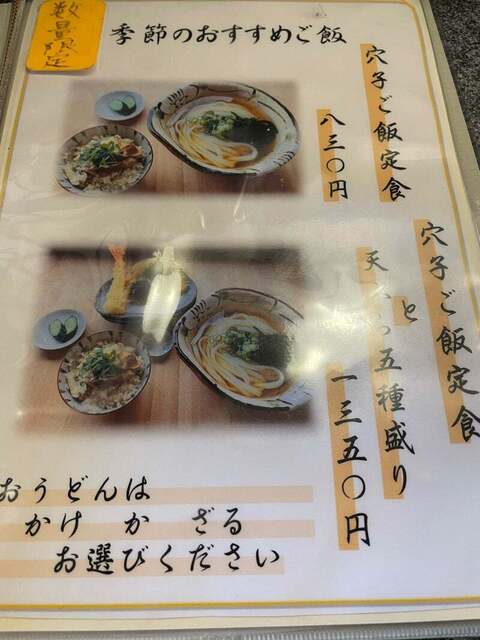 数量限定
季節のおすすめご飯
穴子ご飯定食
八三〇円
穴子ご飯定食
と
天ぷら五種盛り
一三五〇円
おうどんは
かけ か ざる
お選びください